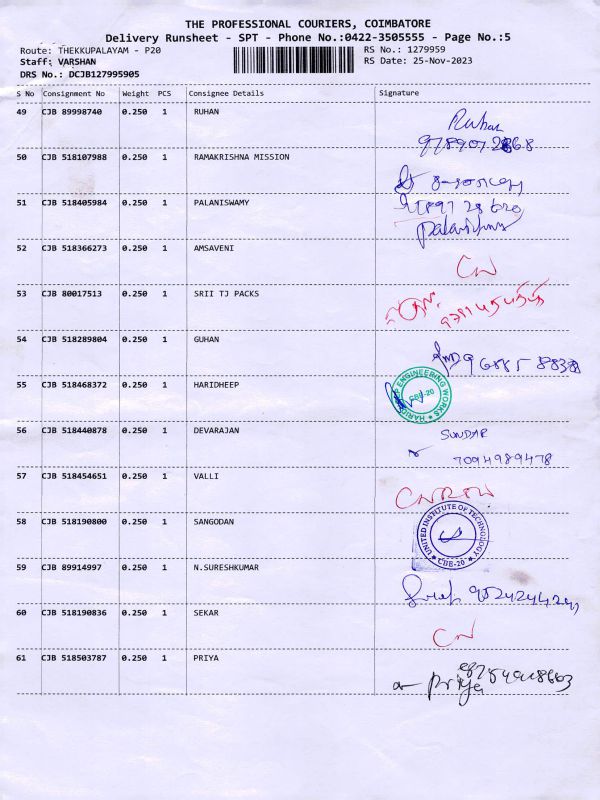 THE PROFESSIONAL COURIERS, COIMBATORE
Delivery Runsheet - SPT - Phone No.:0422-3505555 - Page No.:5
Route: THEKKUPALAYAM - P20 RS No.: 1279959
Staff: VARSHAN RS Date: 25-Nov-2023
DRS No.: DCJB127995905
S No Consignment No Weight PCS Consignee Details Signature
49 CJB 89998740 0.250 1 RUHAN Ruhan
50 CJB 518107988 0.250 1 RAMAKRISHNA MISSION
51 CJB 518405984 0.250 1 PALANISWAMY
52 CJB 518366273 0.250 1 AMSAVENI CN
53 CJB 80017513 0.250 1 SRII TJ PACKS
54 CJB 518289804 0.250 1 GUHAN
55 CJB 518468372 0.250 1 HARIDHEEP ENGINEERING WORKS CBE-20
56 CJB 518440878 0.250 1 DEVARAJAN SUNDAR
7094989478
57 CJB 518454651 0.250 1 VALLI
58 CJB 518190800 0.250 1 SANGODAN UNITED INSTITUTE OF TECHNOLOGY CBE-20
59 CJB 89914997 0.250 1 N.SURESHKUMAR
60 CJB 518190836 0.250 1 SEKAR CN
61 CJB 518503787 0.250 1 PRIYA Priya